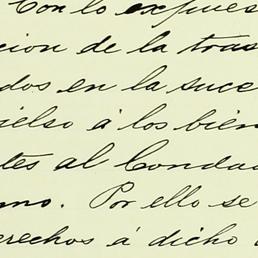 Con lo expues
cion de la tras
dos en la suce
ielso á los bien
tes al Condad
mo. Por ello se
erechos á dicho